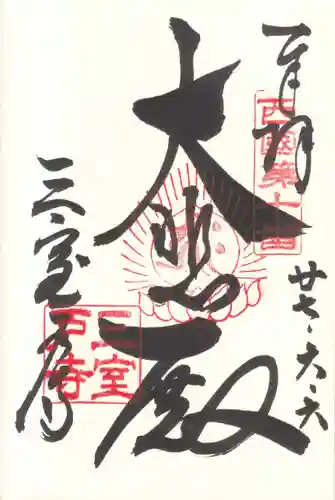 奉拝
西國第十番
廿七・六・六
大悲殿
三室戸寺
三室
戸寺